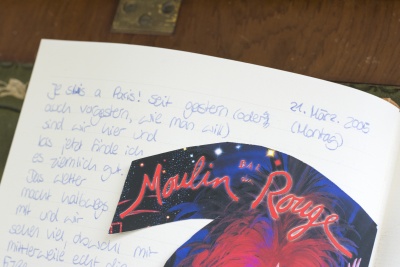 Je suis a Paris! Seit gestern (oder
auch vorgestern, wie man will)
sind wir hier und
bis jetzt finde ich
es ziemlich gut.
Das Wetter
macht halbwegs
mit und wir
sehen viel
mittlerweile echt die
21. März. 2005
(Montag)
Moulin Rouge